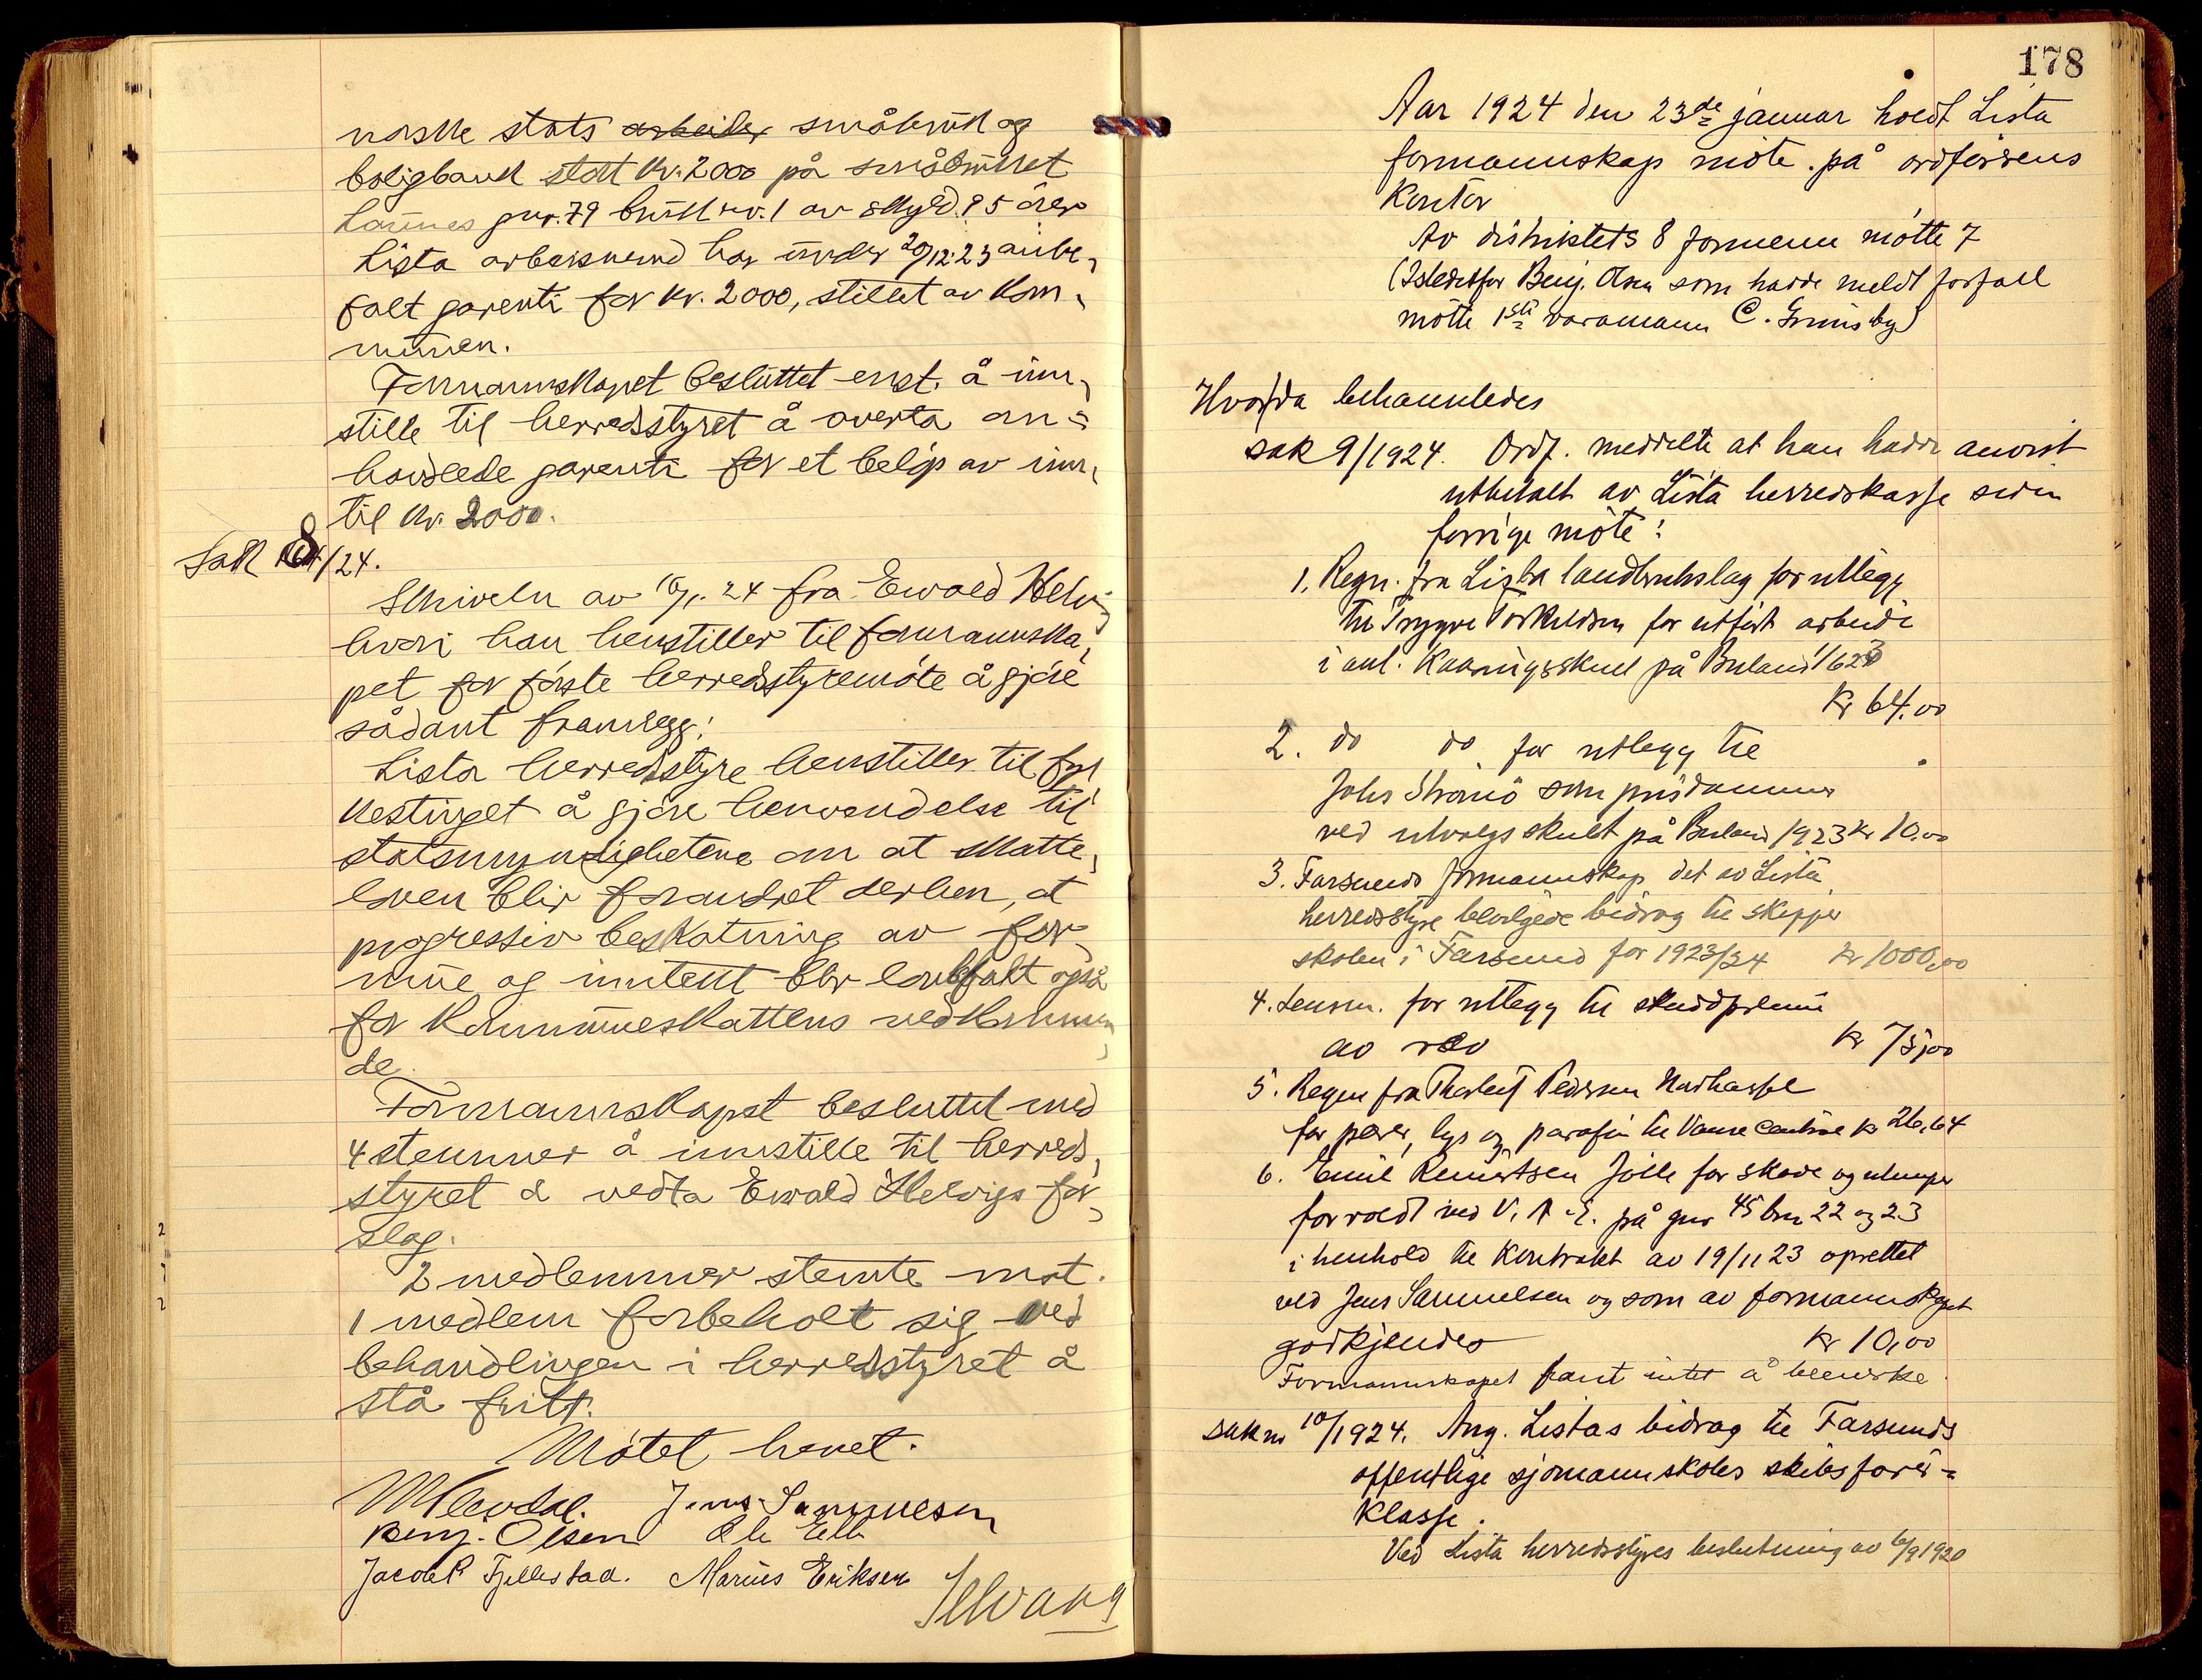 norske stats arbeider småbruk og
boligbank stort kr. 2000 på småbruket
Launes gnr. 79 bruk nr. 1 av skyld 95 ører
Lista arbeisnemd har under 20/12 23 anbe-
falt garenti for kr. 2000, stillet av kom-
munen.
Formannskapet besluttet enst. å inn-
stille til herredsstyret å overta an=
havdlede garenti for et beløp av inn-
til kr. 2000.
Sak 8/24.
Skrivelse av 10/1. 24 fra Ewald Helvig
hvori han henstiller til formannska-
pet for første herredsstyremöte å gjöre
sådant framlegg:
Lista herredsstyre henstiller til fyl-
kestinget å gjöre henvendelse til
statsmyndighetene om at skatte-
loven blir forandret derhen, at
progressiv beskatning av for-
mue og inntekt blir lovbefalt også
for kommuneskattens vedkommen-
de.
Formannskapet besluttet med
4 stemmer å innstille til herreds-
styret å vedta Ewald Helvigs for-
slag.
2 medlemmer stemte mot.
1 medlem forbeholt sig ved
behandlingen i herredsstyret å
stå fritt.
Mötet hevet.
M Clevdal. Jens Samuelsen
Benj. Olsen Ole Elle
Jacob R Fjellestad. Marius Eriksen
178
Aar 1924 den 23de januar holdt Lista
formannskap möte på ordförerens
kontor
Av distriktets 8 formenn mötte 7
(Istedetfor Benj. Olsen som hadde meldt forfall
mötte 1ste varamann C. Grimsby)
Hvorda behannledes
sak 9/1924. Ordf. meddelte at han hadde anvist
utbetalt av Lista herredskasse siden
forrige möte:
1. Regn. fra Lista landbrukslag for utlegg
til Trygve Torkildsen for utfört arbeide
i anl. Kaaringsskuet på Buland 1/6 23
Kr 64.00
2. do do for utlegg til
Johs Strömö som prisdommer
ved utvalgsskuet på Buland 1923 Kr 10.00
3. Farsunds formannskap det av Lista
herredsstyre bevilgede bidrag til skipper
skolen i Farsund for 1923/24 kr 1000,00
4. Lensm. for utlegg til skuddpremie
av rev Kr 75,00
5. Regn fra Thorleif Pedersen Nordhassel
for pærer, lys og parafin til Vanse Centrale kr 26,64
6. Emil Reinertsen Jölle for skade og ulemper
forvoldt ved V. A. E. på gnr 45 bnr 22 og 23
i henhold til Kontrakt av 19/11 23 oprettet
ved Jens Samuelsen og som av formannskapet
godkjendes Kr 10,00
Formannskapet fant intet å bemerke
sak nr 10/1924. Ang. Listas bidrag til Farsunds
offentlige sjömannskoles skibsförer=
klasse.
Ved Lista herredsstyres beslutning av 6/9 1920